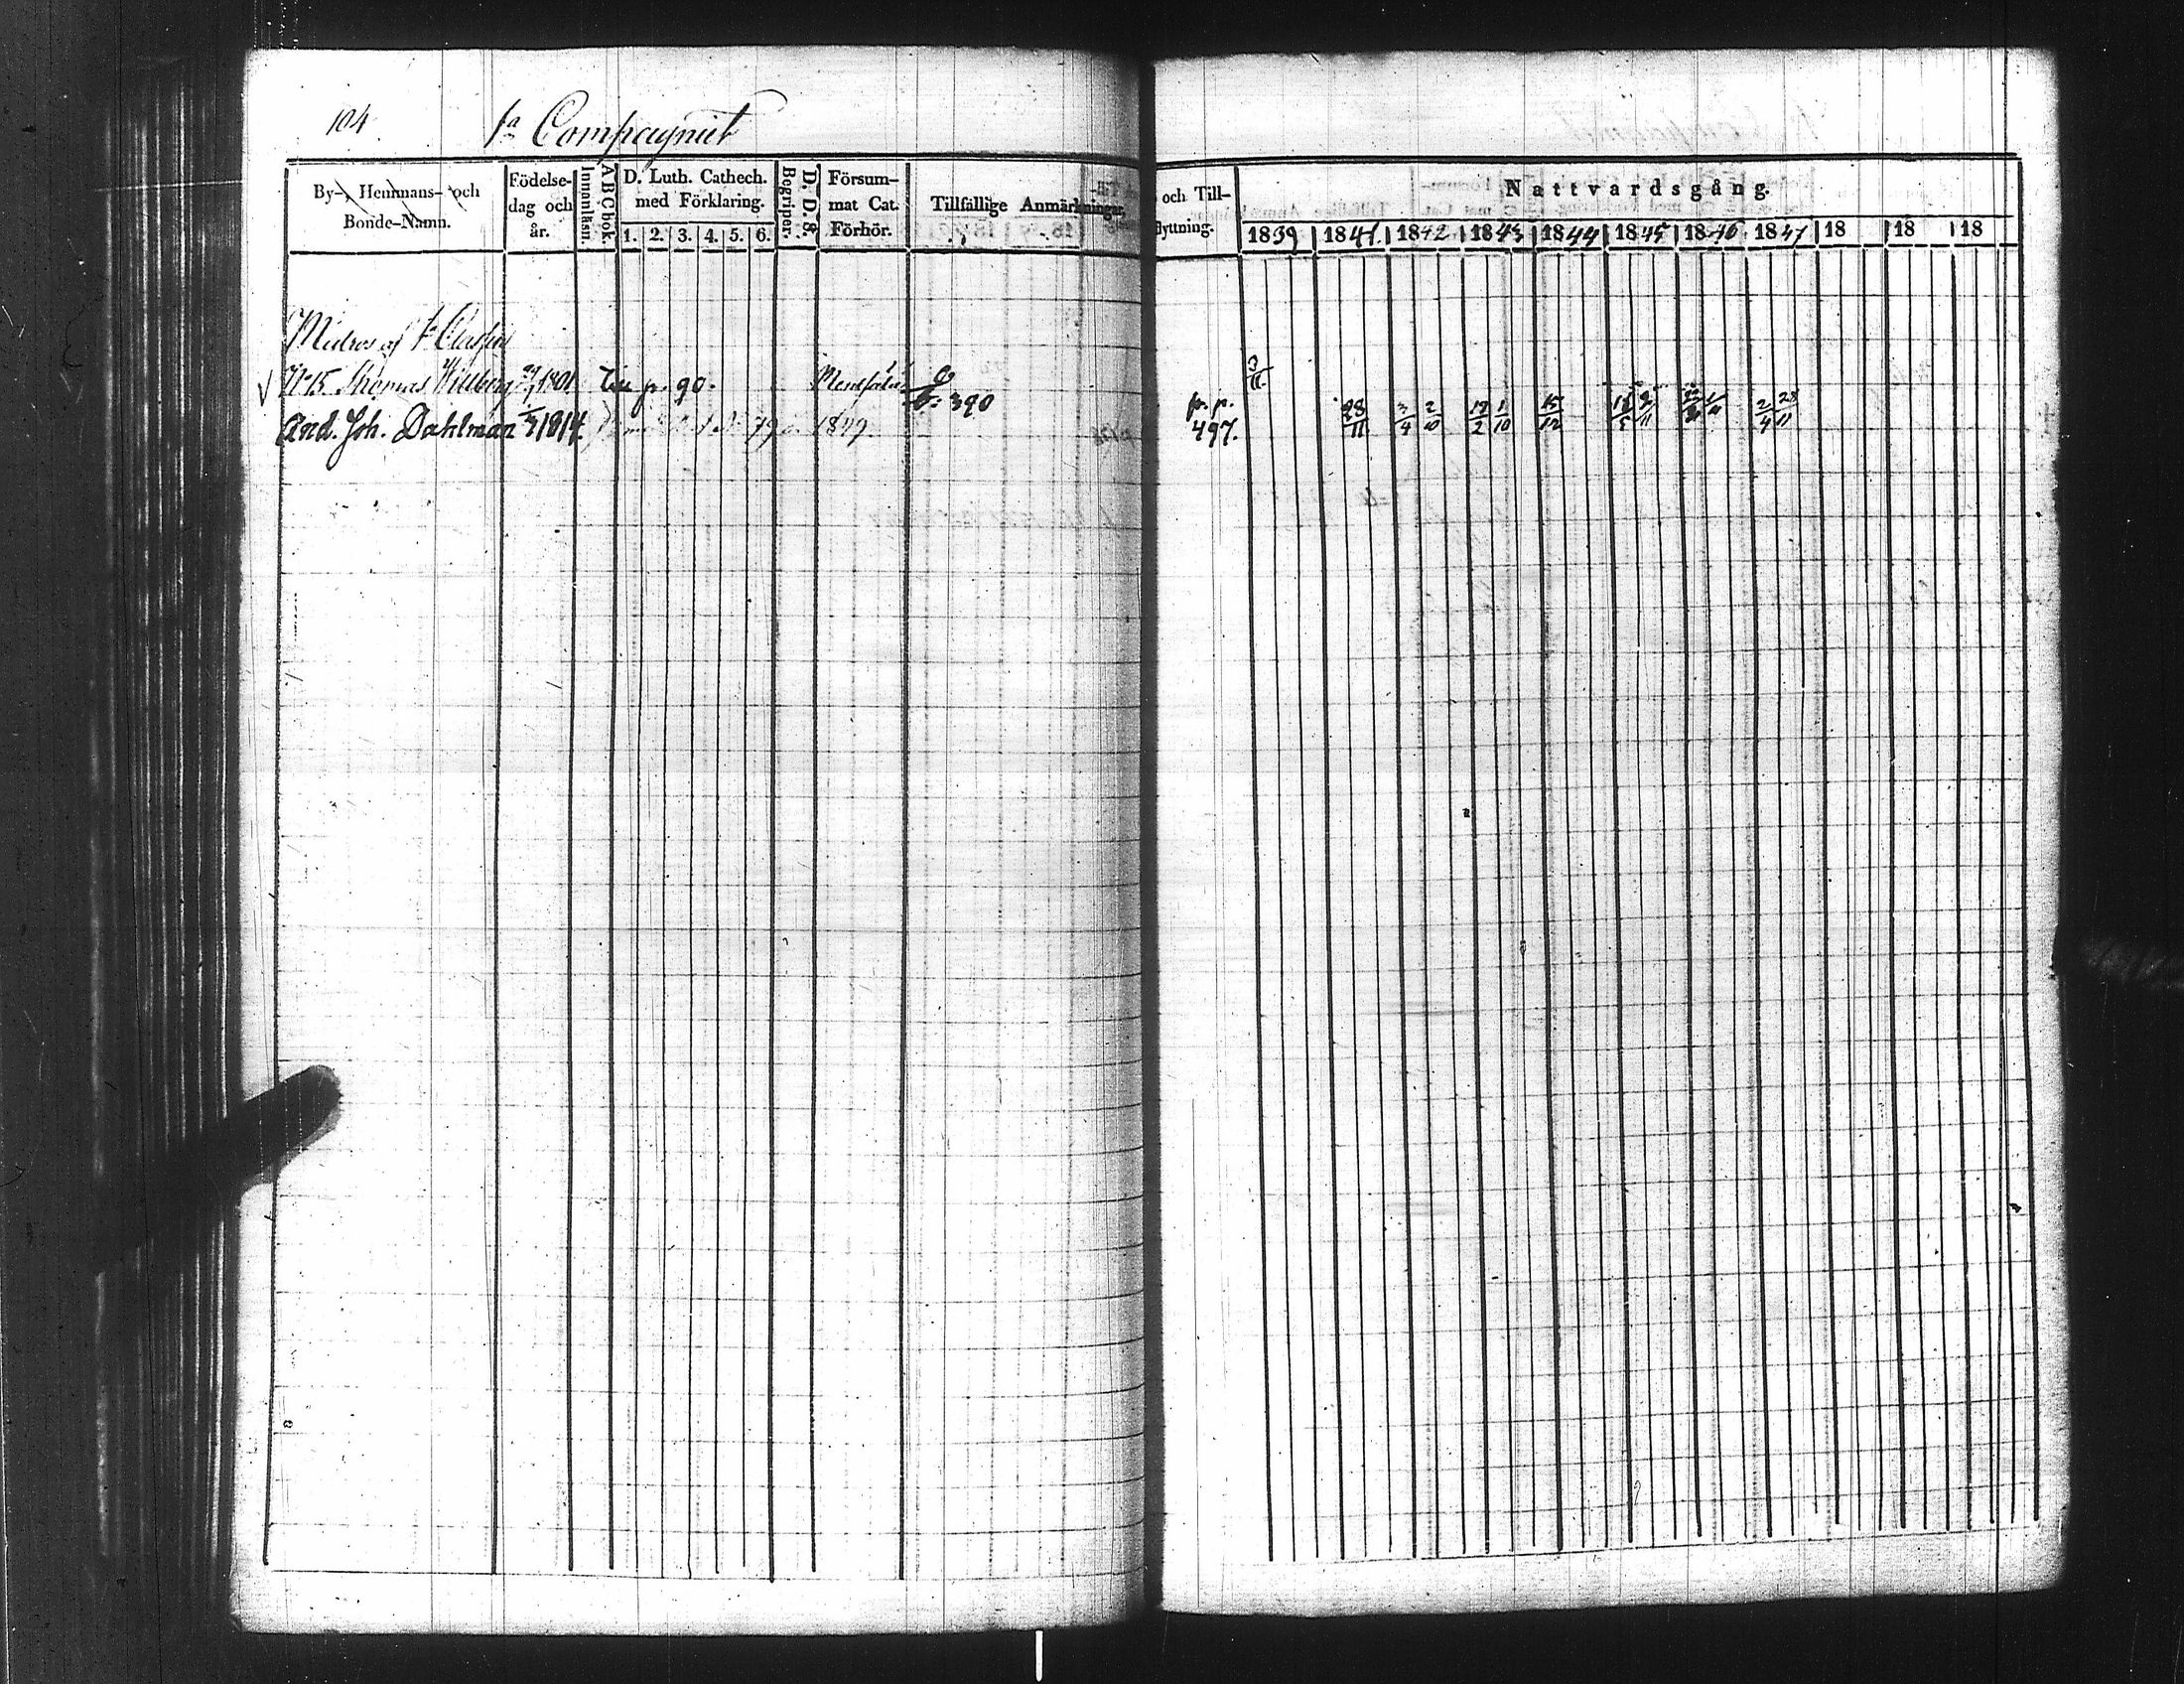 104
1a Compagniet
By-, Hemmans- och Bonde-Namn.
Födelse-dag och år.
Innanläsn.
A B C bok.
D. Luth. Cathech. med Förklaring.
1. 2. 3. 4. 5. 6.
Begriper.
D. D. S.
Försum-mat Cat. Förhör.
Tillfällige Anmärkningar.
och Till-
flyttning.
Nattvardsgång.
1839 1841. 1842 1843 1844 1845 1846 1847 18 18 18
af 1a
No 15. Thomas Willberg 1801. p. 90.
390
And. Joh. Dahlman 1814. 79 1849
p. p. 497.
3/11
28/11 3/4 2/10 12/2 1/10 15/12 2/11 2/4 28/11